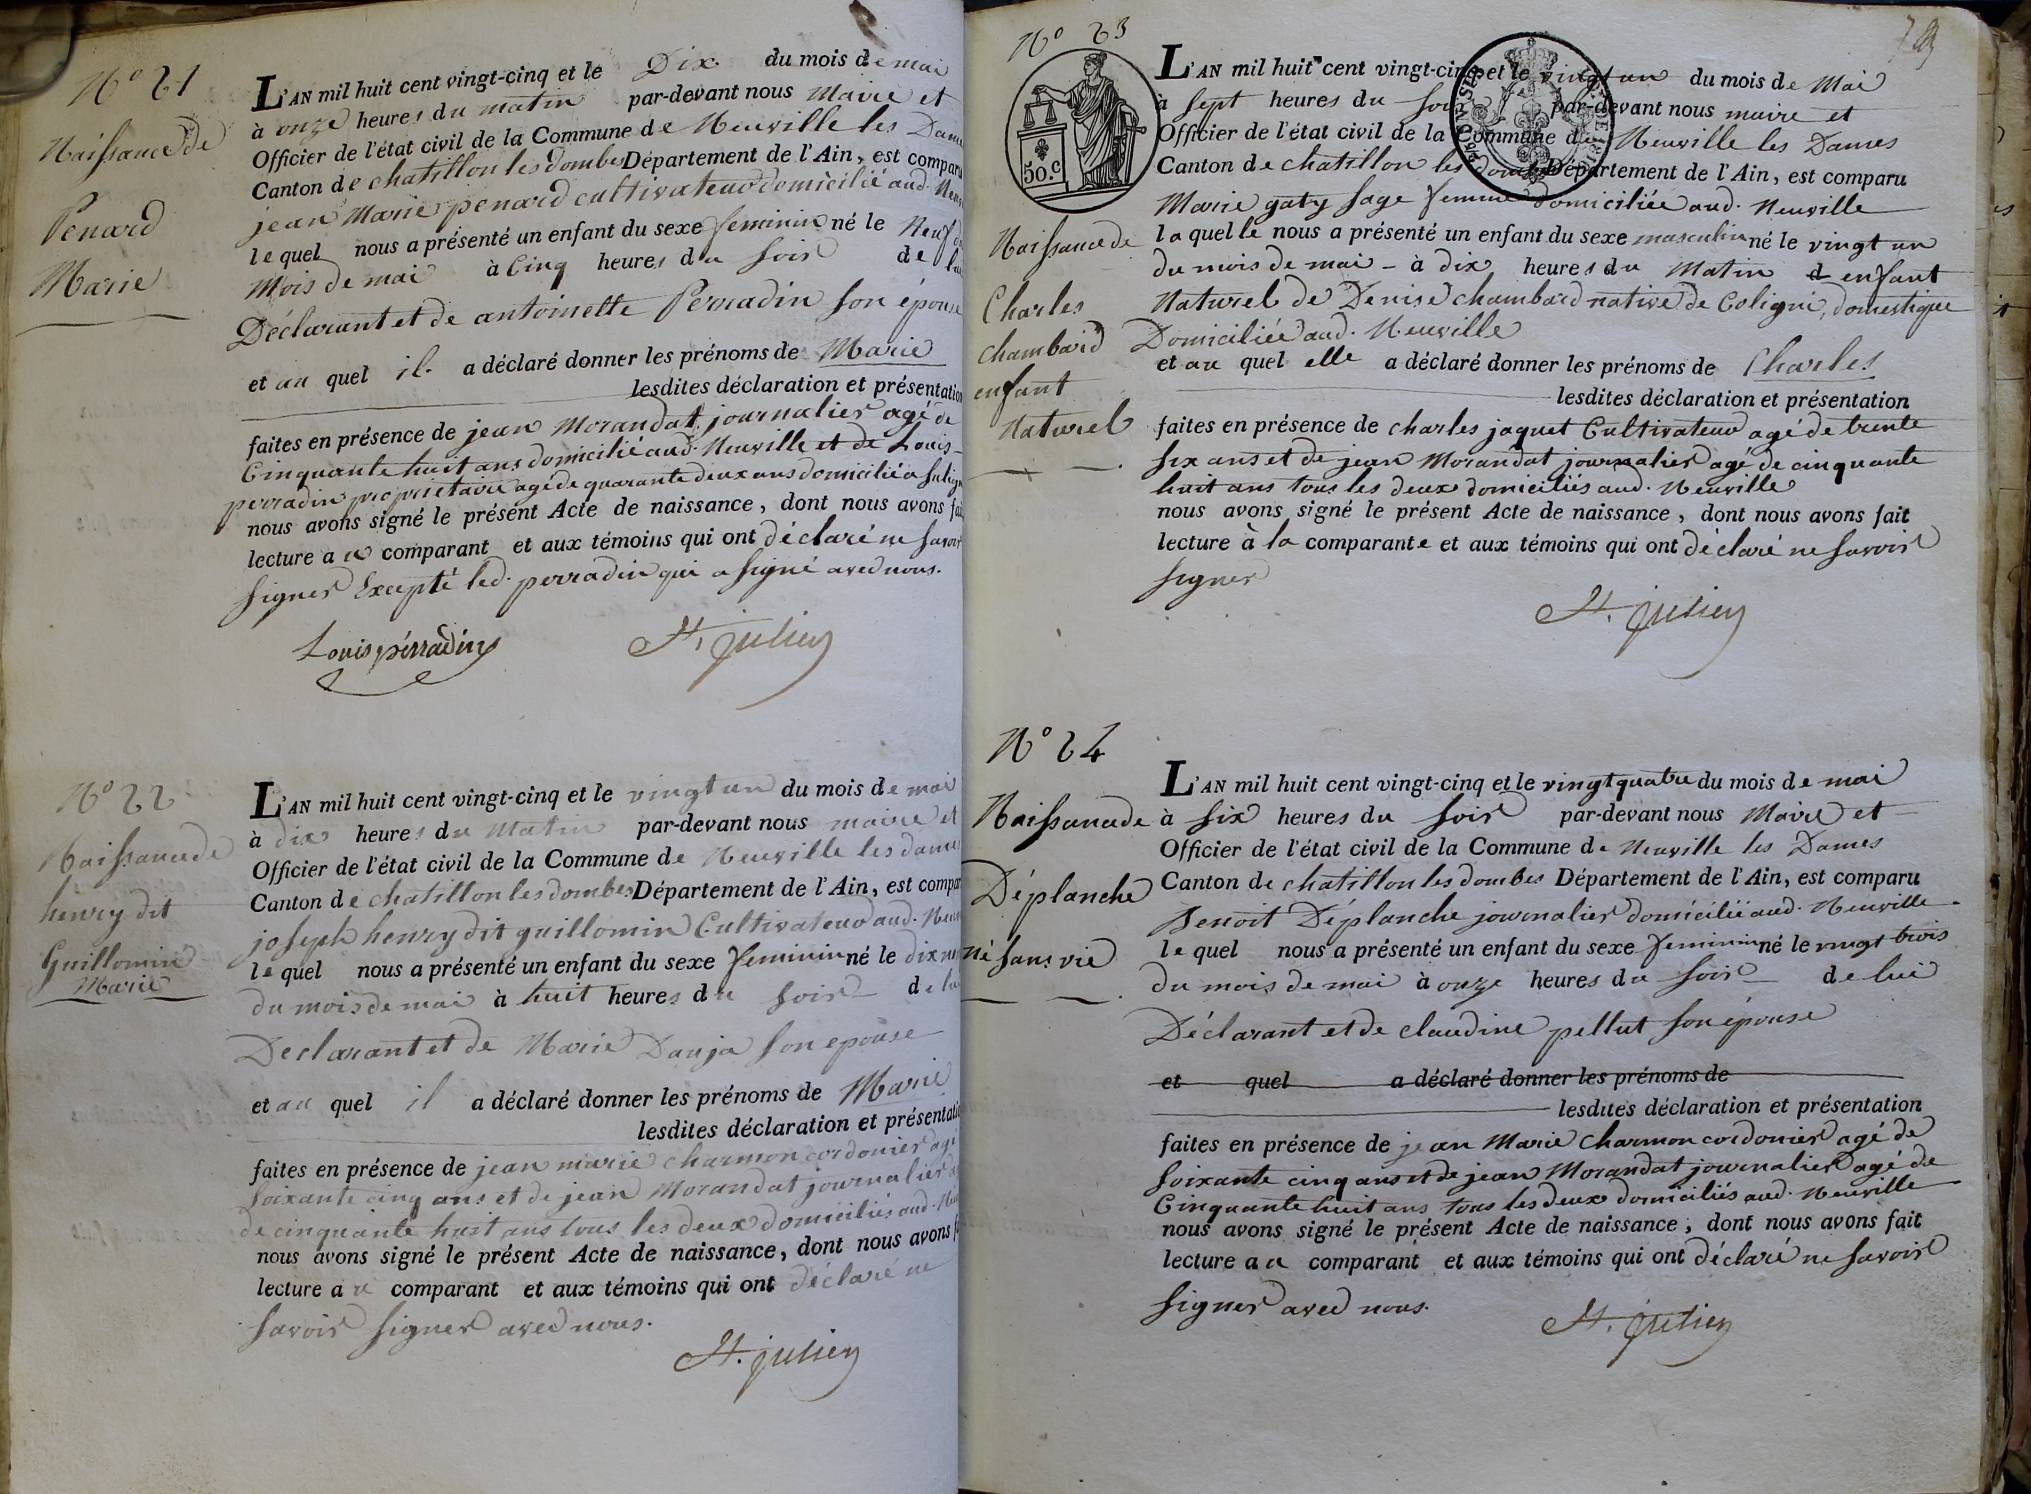 N° 21
Naissance de
Penard
Marie
L'AN mil huit cent vingt-cinq et le Dix du mois de mai
à onze heures du matin par-devant nous Maire et
Officier de l'état civil de la Commune de Neuville les Dames
Canton de chatillon les dombes Département de l'Ain, est comparu
jean Marie penard cultivateur domicilié aud.
le quel nous a présenté un enfant du sexe feminin né le Neuf
Mois de mai à Cinq heures du soir de lui
Déclarant et de antoinette Perradin son épouse
et au quel il a déclaré donner les prénoms de Marie
lesdites déclaration et présentation
faites en présence de jean Morandat journalier agé de
Cinquante huit ans domicilié aud. Neuville et de Louis
perradin propriétaire agé de quarante deux ans domicilié a
nous avons signé le présent Acte de naissance, dont nous avons fait
lecture au comparant et aux témoins qui ont déclaré ne savoir
signer Excepté led. perradin qui a signé avec nous.
Louis pérradin St. julien
N° 22
Naissance de
henry dit
Guillomin
Marie
L'AN mil huit cent vingt-cinq et le vingt un du mois de mai
à dix heures du Matin par-devant nous maire et
Officier de l'état civil de la Commune de Neuville les dames
Canton de chatillon les dombes Département de l'Ain, est compar
joseph henry dit guillomin Cultivateur aud.
le quel nous a présenté un enfant du sexe feminin né le dix
du mois de mai à huit heures du soir de lui
Déclarant et de Marie Danja son epouse
et au quel il a déclaré donner les prénoms de Marie
lesdites déclaration et présentation
faites en présence de jean marie charmon cordonier agé
soixante cinq ans et de jean Morandat journalier
de cinquante huit ans tous les deux domiciliés aud.
nous avons signé le présent Acte de naissance, dont nous avons
lecture au comparant et aux témoins qui ont déclaré ne
savoir signer avec nous.
St. julien
N° 23
50. C
Naissance de
Charles
chambard
enfant
Naturel
L'AN mil huit cent vingt-cinq et le vingt un du mois de Mai
à sept heures du soir par-devant nous maire et
Officier de l'état civil de la Commune de Neuville les Dames
Canton de chatillon les dombes Département de l'Ain, est comparu
Marie gaty sage femme domiciliée aud. Neuville
la quelle nous a présenté un enfant du sexe masculin né le vingt un
du mois de mai - à dix heures du Matin d enfant
Naturel de Denise chambard native de Coligni, domestique
Domiciliée aud. Neuville
et au quel elle a déclaré donner les prénoms de Charles
lesdites déclaration et présentation
faites en présence de charles jaquet Cultivateur agé de trente
six ans et de jean Morandat journalier agé de cinquante
huit ans tous les deux domiciliés aud. Neuville
nous avons signé le présent Acte de naissance, dont nous avons fait
lecture à la comparante et aux témoins qui ont déclaré ne savoir
signer
St. julien
N° 24
Naissance de
Déplanche
né sans vie
L'AN mil huit cent vingt-cinq et le vingt quatre du mois de mai
à six heures du soir par-devant nous Maire et
Officier de l'état civil de la Commune de Neuville les Dames
Canton de chatillon les dombes Département de l'Ain, est comparu
Benoit Déplanche journalier domicilié aud. Neuville
le quel nous a présenté un enfant du sexe feminin né le vingt trois
du mois de mai à onze heures du soir de lui
Déclarant et de claudine pellut son épouse
et quel a déclaré donner les prénoms de
lesdites déclaration et présentation
faites en présence de jean Marie Charmon cordonier agé de
soixante cinq ans et de jean Morandat journalier agé de
Cinquante huit ans tous les deux domiciliés aud. Neuville
nous avons signé le présent Acte de naissance, dont nous avons fait
lecture au comparant et aux témoins qui ont déclaré ne savoir
signer avec nous.
St. julien